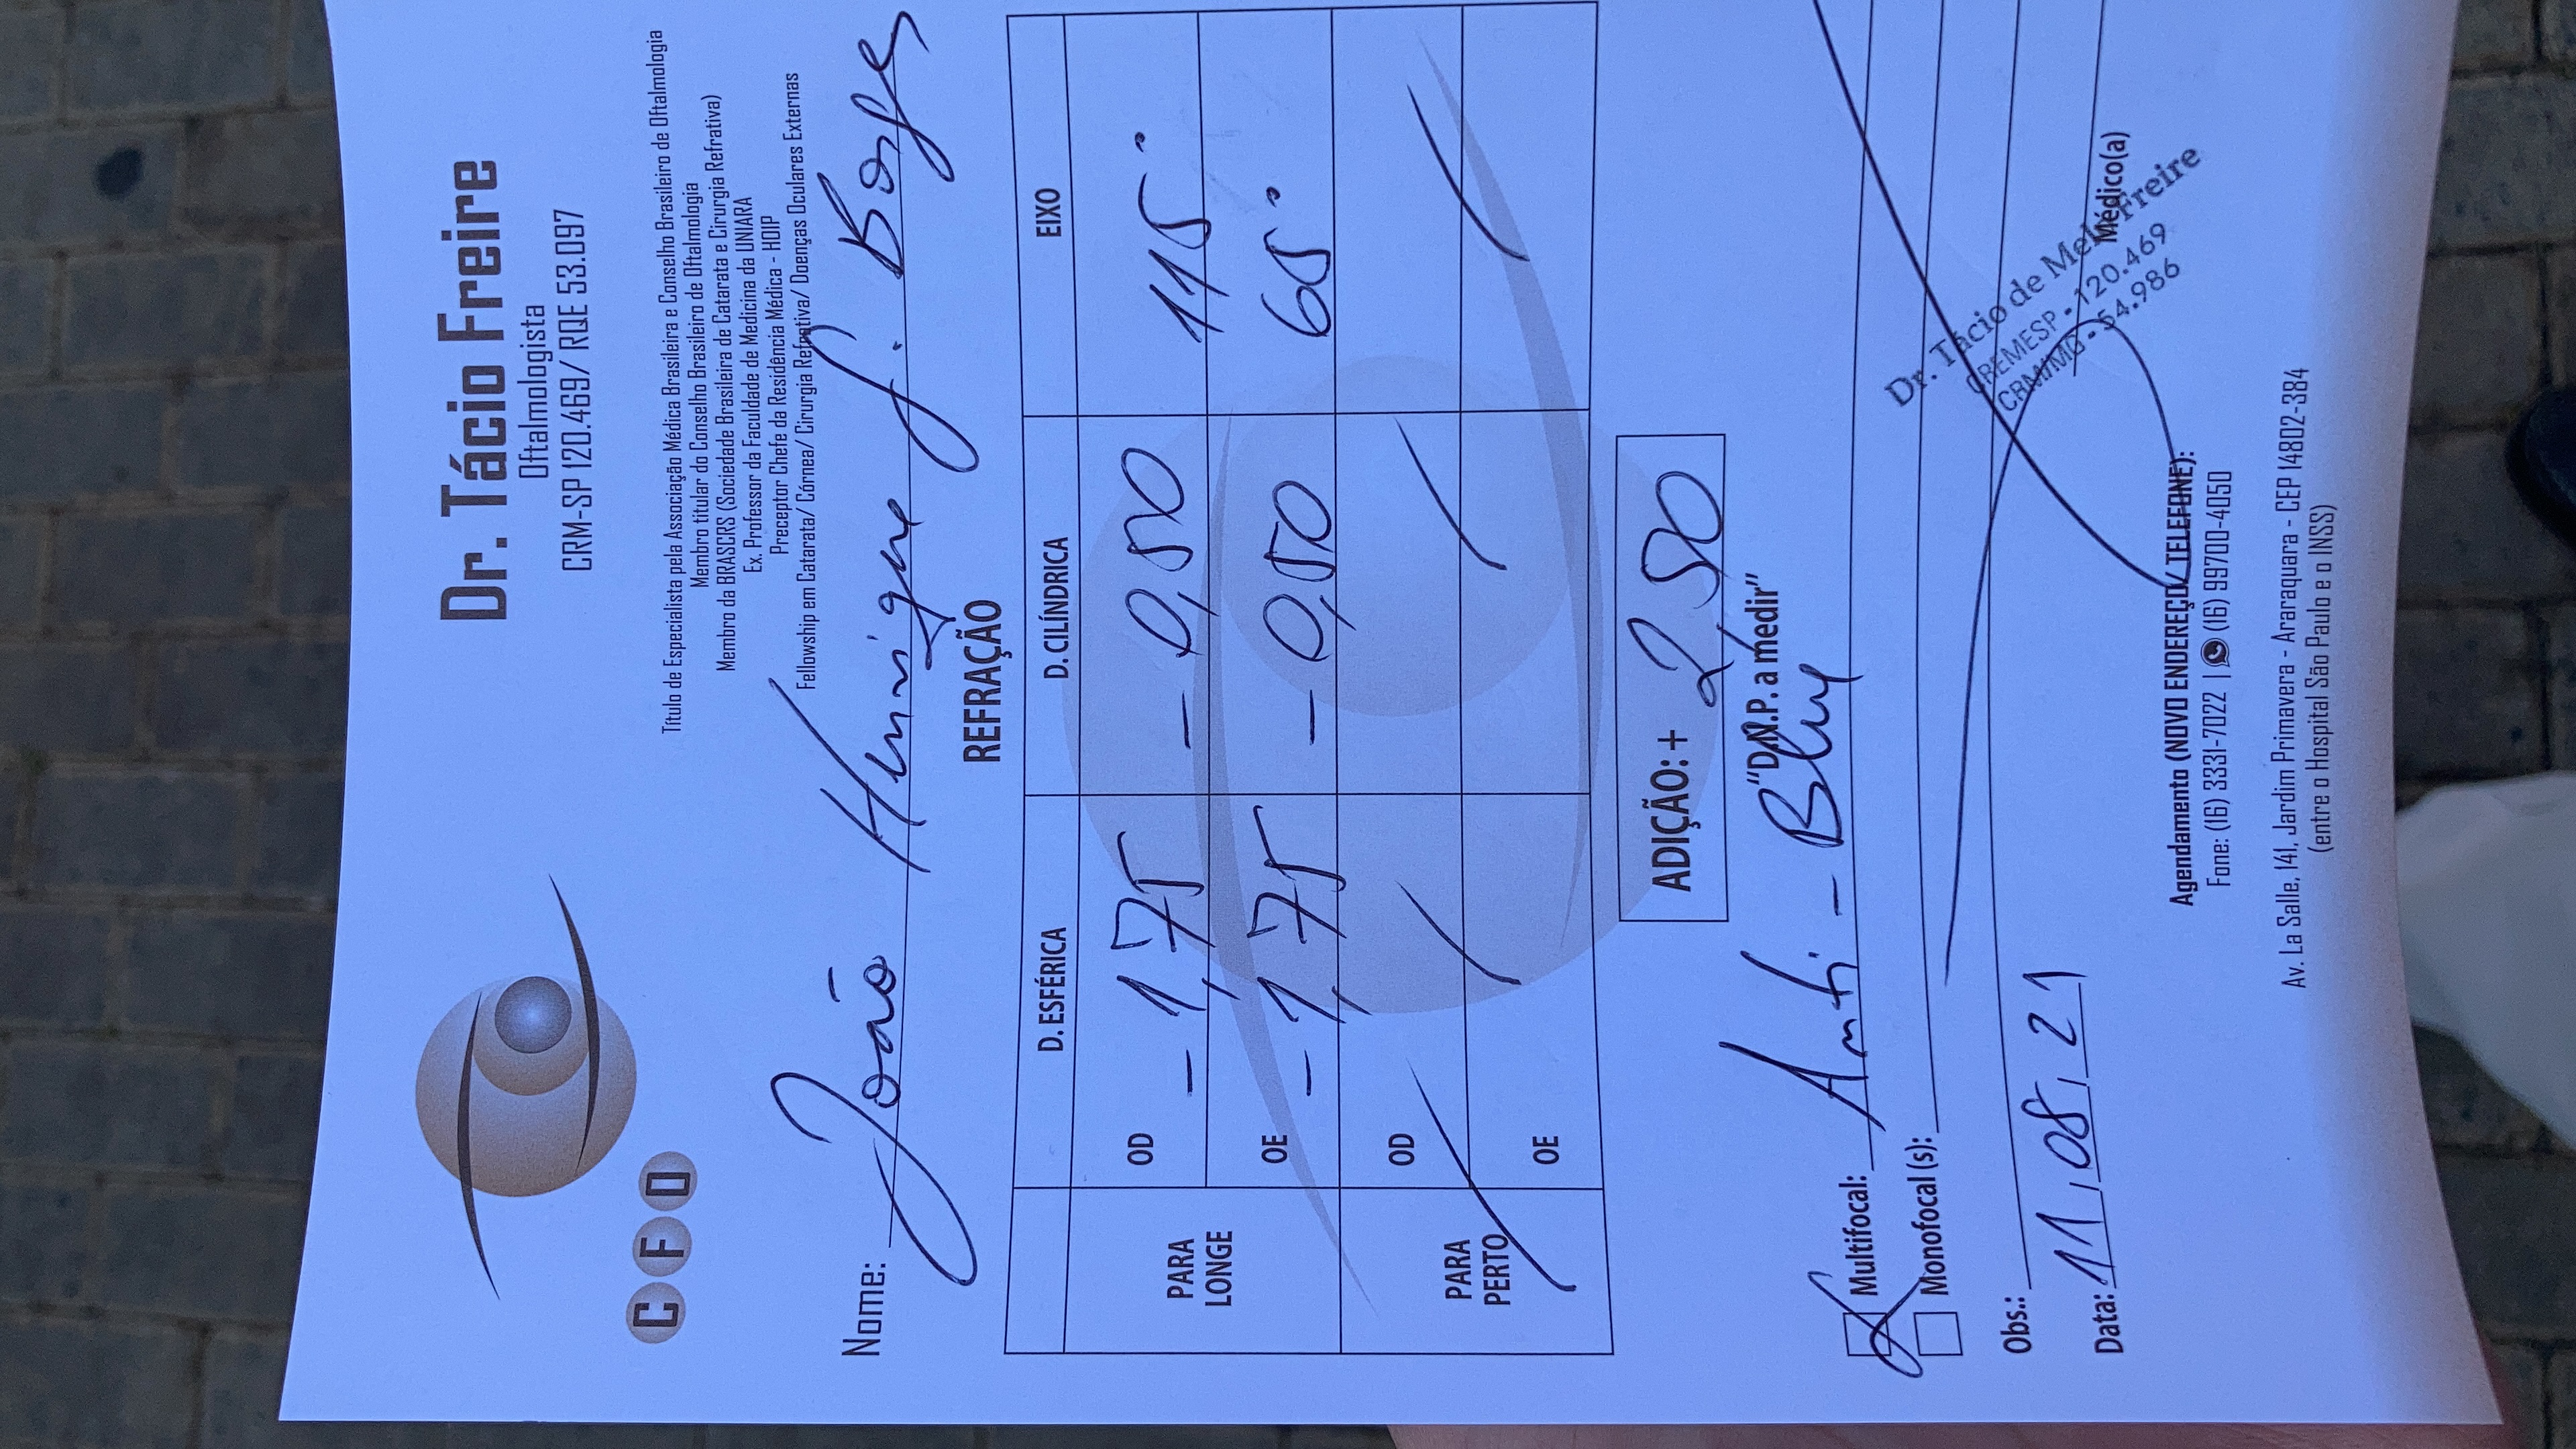 CFO
Dr. Tácio Freire
Oftalmologista
CRM-SP 120.469/ RQE 53.097
Título de Especialista pela Associação Médica Brasileira e Conselho Brasileiro de Oftalmologia
Membro titular do Conselho Brasileiro de Oftalmologia
Membro da BRASCRS (Sociedade Brasileira de Catarata e Cirurgia Refrativa)
Ex. Professor da Faculdade de Medicina da UNIARA
Preceptor Chefe da Residência Médica - HOIP
Fellowship em Catarata/ Córnea/ Cirurgia Refrativa/ Doenças Oculares Externas
Nome: João Henrique S. Borges
REFRAÇÃO
D. ESFÉRICA D. CILÍNDRICA EIXO
PARA LONGE
OD -1,75 -0,50 115°
OE -1,75 -0,50 65°
PARA PERTO
OD
OE
ADIÇÃO: + 2,50
"D.N.P. a medir"
Multifocal: Anti-Blue
Monofocal (s):
Obs.:
Data: 11,08,21
Dr. Tácio de Melo Freire
CREMESP - 120.469
CRM/MG - 54.986
Médico(a)
Agendamento (NOVO ENDEREÇO/ TELEFONE):
Fone: (16) 3331-7022 | (16) 99700-4050
Av. La Salle, 141, Jardim Primavera - Araraquara - CEP 14802-384
(entre o Hospital São Paulo e o INSS)